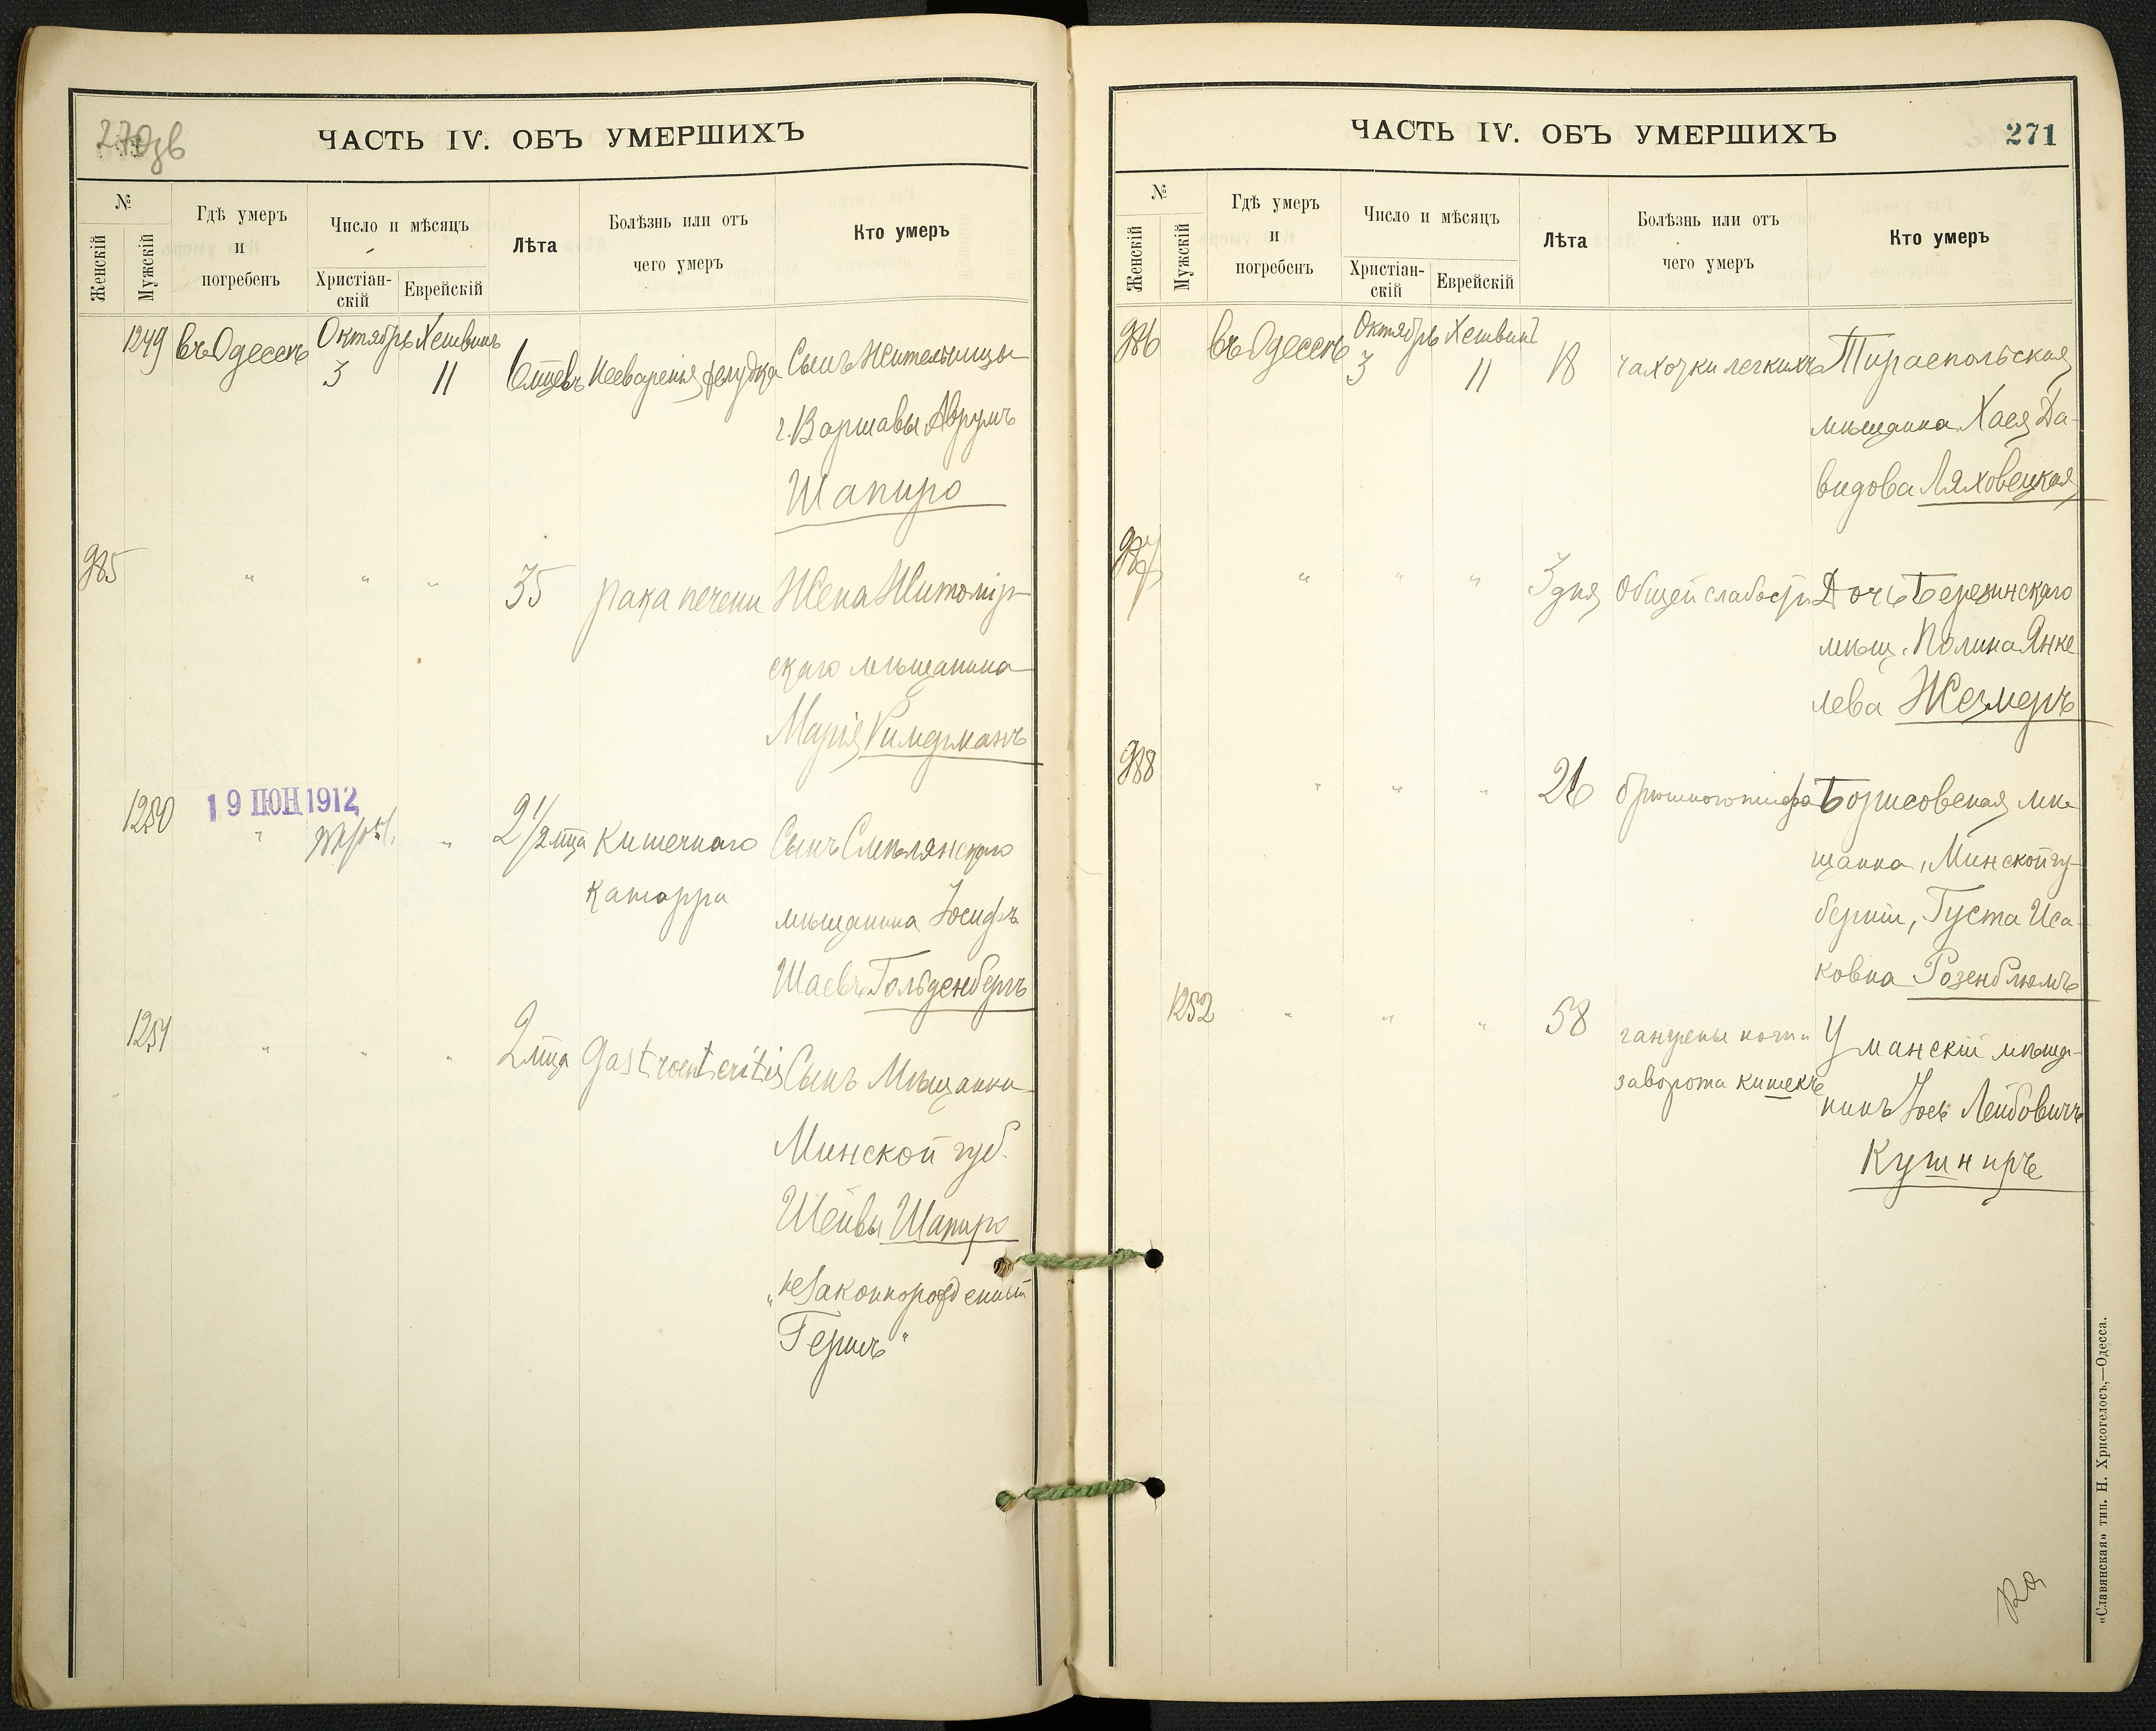 270зв
ЧАСТЬ IV. ОБЪ УМЕРШИХЪ
№
Женскій
Мужскій
Гдѣ умеръ
и
погребенъ
Число и мѣсяцъ
Христіан-
скій
Еврейскій
Лѣта
Болѣзнь или отъ
чего умеръ
Кто умеръ
1249 въ Одессѣ Октябрь 3 Хешвинъ 11 6 мцевъ несваренія желудка Сынъ Жительницы
г. Варшавы Аврумъ
Шапиро
985 " " " 35 рака печени Жена Житомір-
скаго мѣщанина
Марія
1250 19 ІЮН 1912 " " 2 1/2 мца кишечнаго Сынъ Смѣлянскаго
катарра
мѣщанина Іосифъ
Шаевъ Гольденбергъ
1251 " " " 2 мца Gastroenteritis Сынъ Мѣщанки
Минской губ.
Шейвы Шапиро
"незаконнорожденный
Гершъ"
ЧАСТЬ IV. ОБЪ УМЕРШИХЪ
271
№
Женскій
Мужскій
Гдѣ умеръ
и
погребенъ
Число и мѣсяцъ
Христіан-
скій
Еврейскій
Лѣта
Болѣзнь или отъ
чего умеръ
Кто умеръ
986 въ Одессѣ Октябрь 3 Хешвинъ 11 18 чахотки легкихъ Тираспольская
мѣщанка Хася Да-
видова Ляховецкая
987 " " " 3 дня Общей слабости Дочь Березинскаго
мѣщ. Полина Янке
лева Жезмеръ
988 " " " 26 брюшного тифа Борисовская мѣ-
щанка, Минской гу-
берніи, Густа Иса-
ковна Розенблюмъ
1252 " " " 58 гангрены ноги и Уманскій мѣща-
заворота кишекъ
нинъ Іось Лейбовичъ
Кушниръ
«Славянская» тип. Н. Хрисогелосъ,—Одесса.